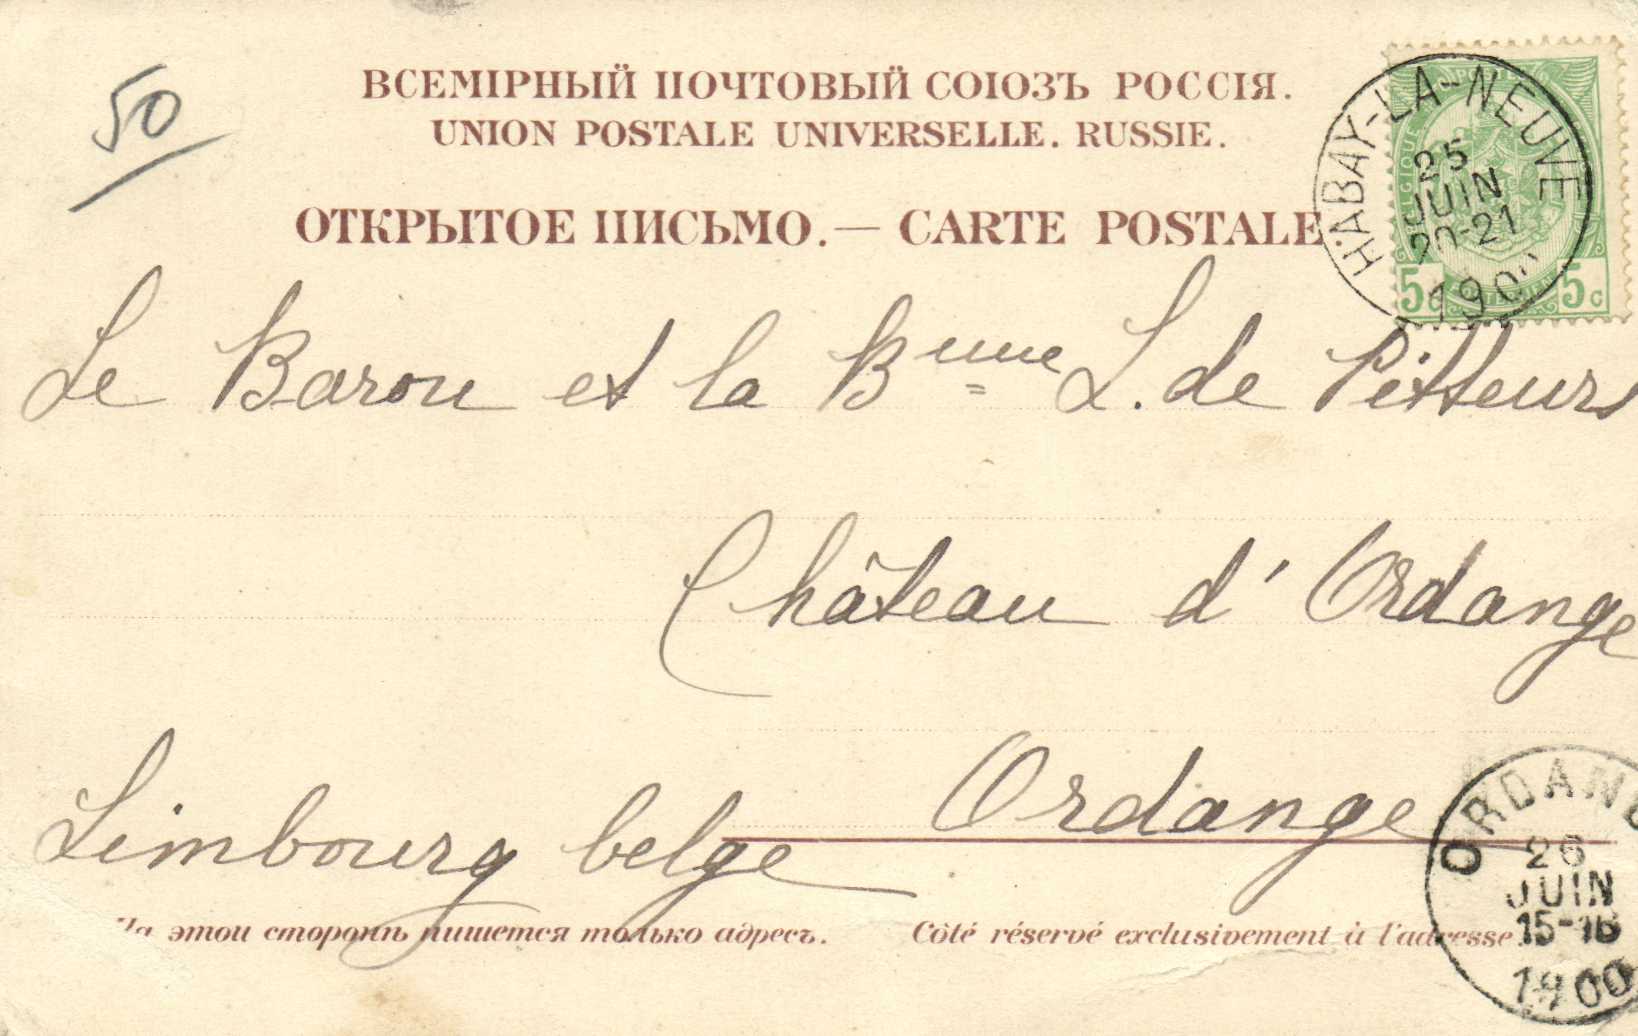 50
ВСЕМІРНЫЙ ПОЧТОВЫЙ СОЮЗЪ РОССІЯ.
UNION POSTALE UNIVERSELLE. RUSSIE.
ОТКРЫТОЕ ПИСЬМО.— CARTE POSTALE
HABAY-LA-NEUVE
25
JUIN
20-21
1900
5c 5c
Le Baron et la Bnne L. de Pitteurs
Château d'Ordange
Ordange
Limbourg belge
ORDANG
26
JUIN
15-16
1900
На этой сторонѣ пишется только адресъ. Côté réservé exclusivement à l'adresse.